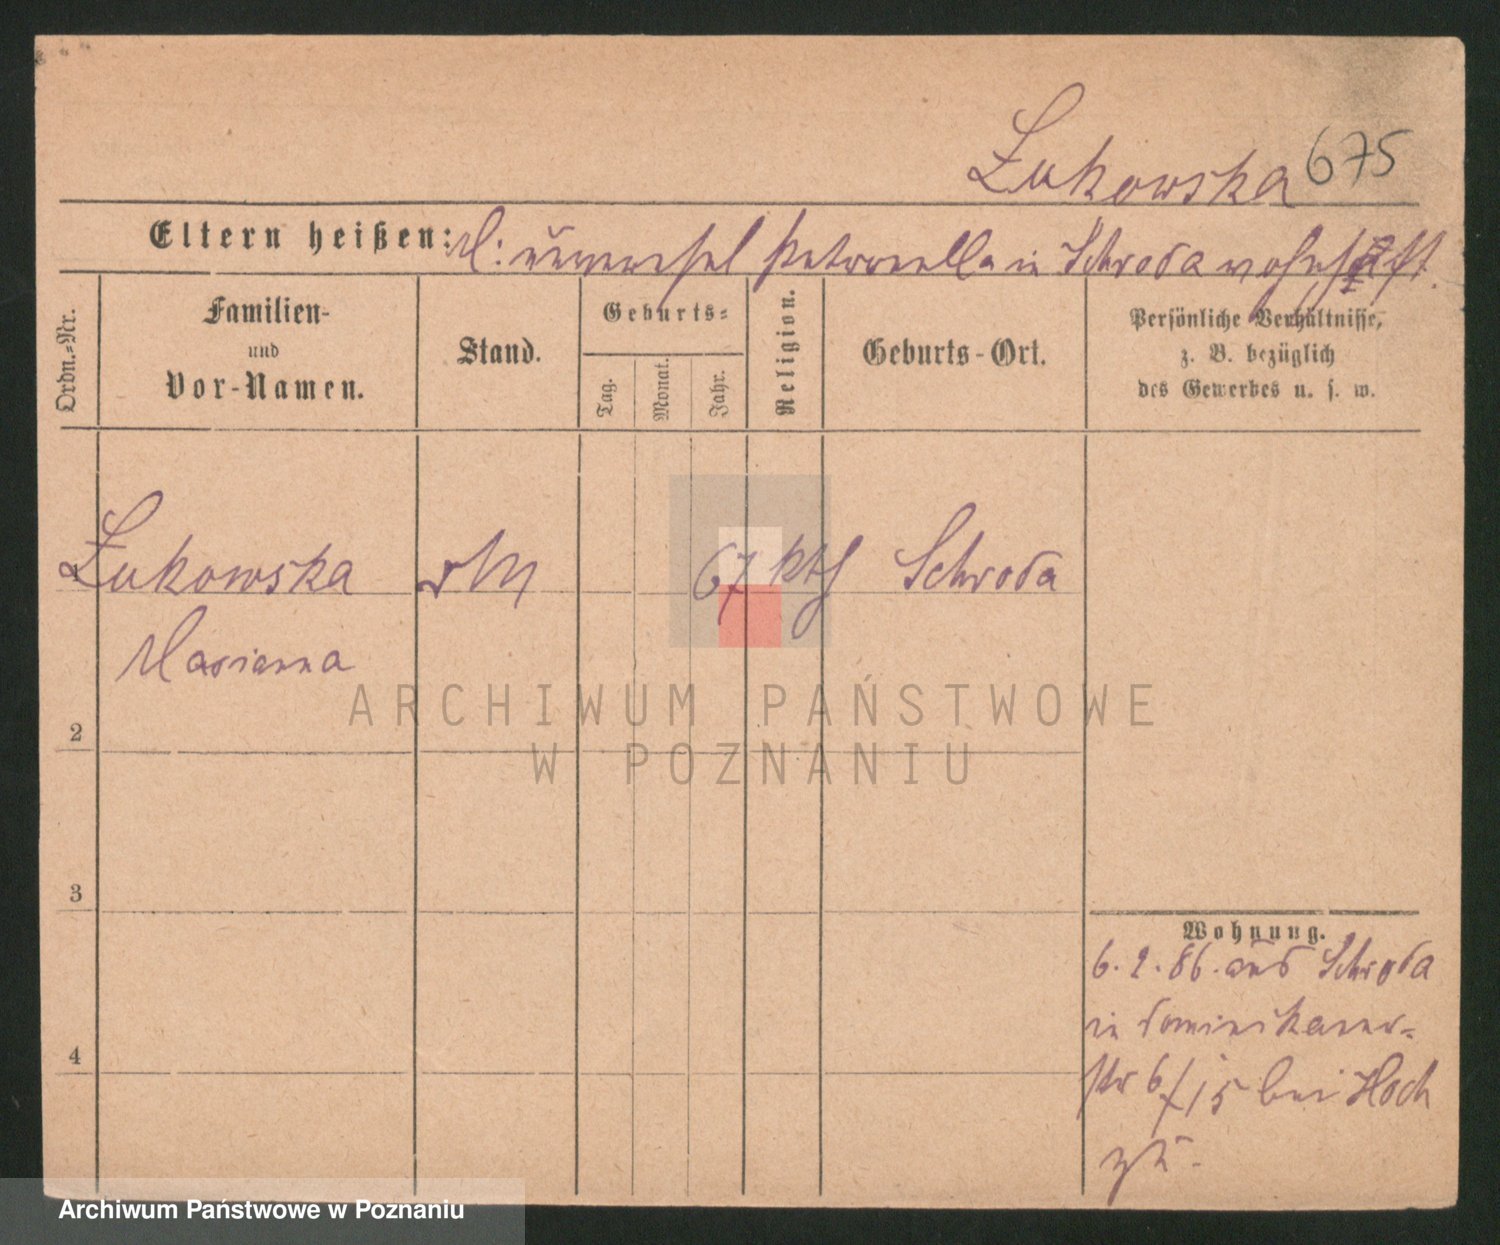 Łukowska 675
Eltern heißen: M: unverehel Petronella in Schroda wohnhaft.
Ordn.-Nr.
Familien-
und
Vor-Namen.
Stand.
Geburts-
Tag.
Monat.
Jahr.
Religion.
Geburts-Ort.
Persönliche Verhältnisse,
z. B. bezüglich
des Gewerbes u. s. w.
Łukowska 67 kth Schroda
Marianna
2
3
4
Wohnung.
6. 2. 86. aus Schroda
in Dominikaner-
str 6/15 bei Hoch
zu.
ARCHIWUM PAŃSTWOWE
W POZNANIU
Archiwum Państwowe w Poznaniu